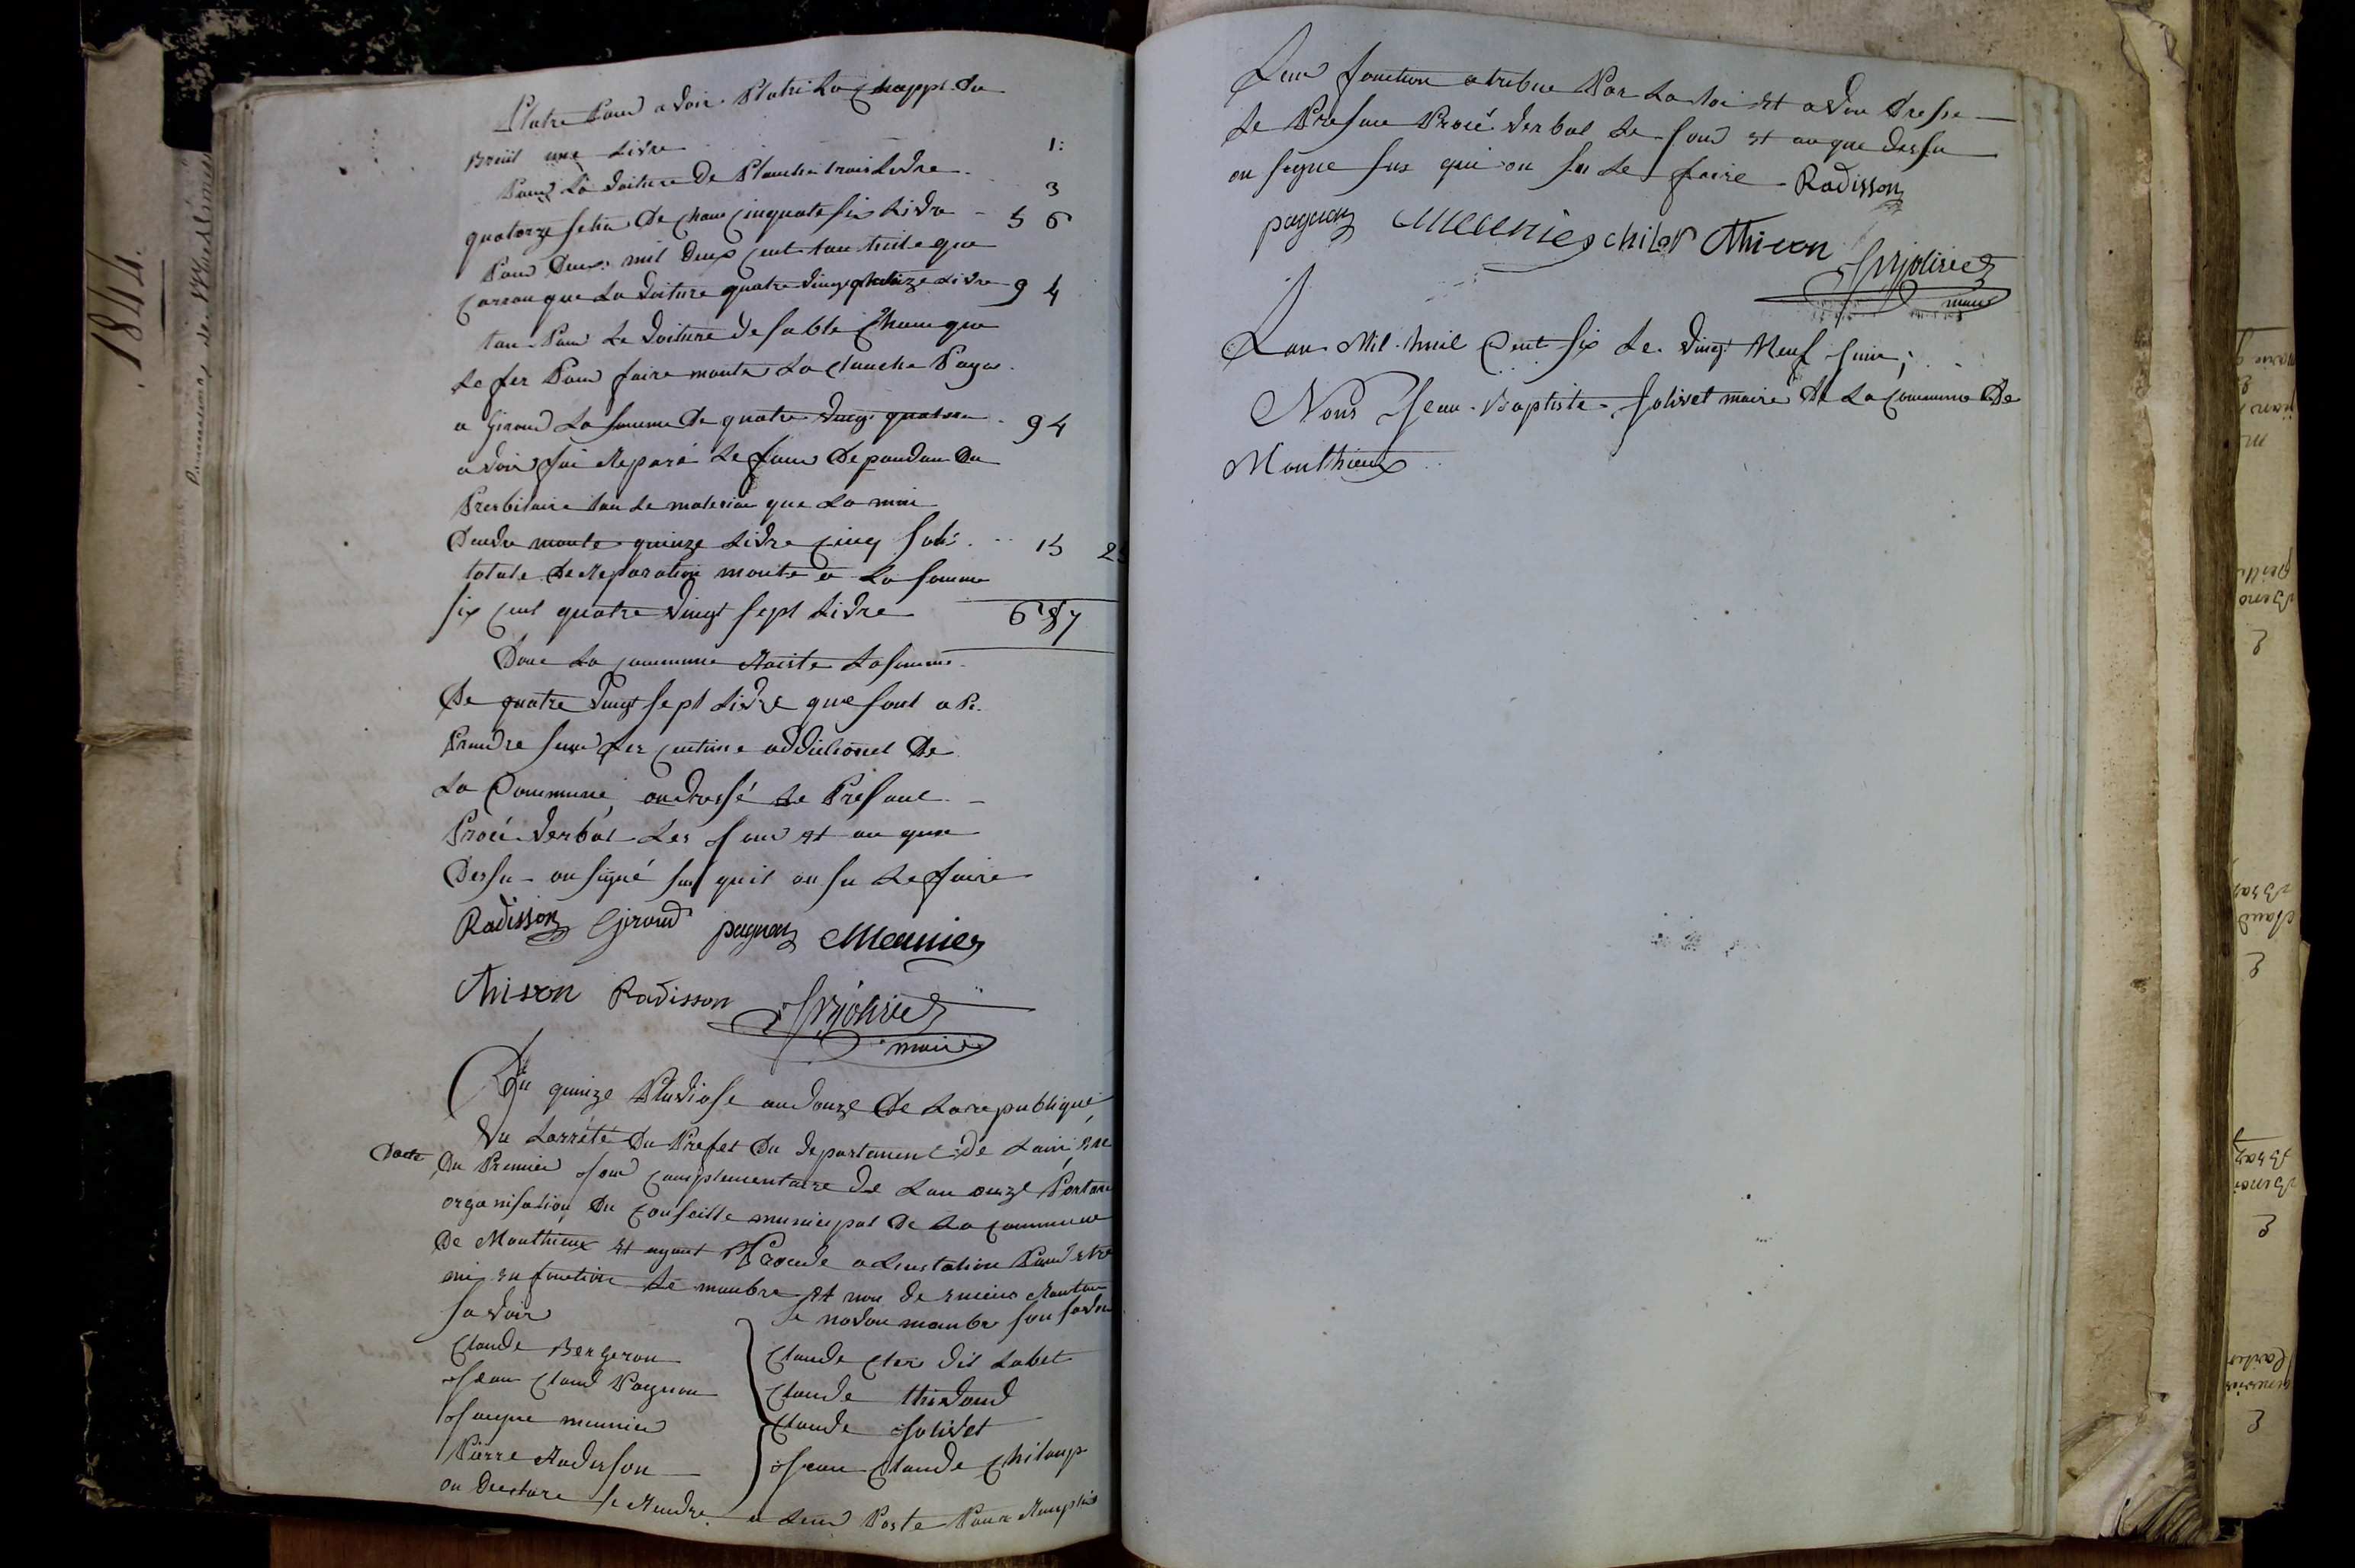 Platre Pour avoir Platri La Chappl. du
Breüil une Livre 1:
Pour La voiture De Planche trois Livre 3
quatorze setie De Chaux Cinquate six Livre 56
Pour Deux mil Deux Cent tan tuile que
Carrau que La voiture quatre vingt quatorze Livre 94
tan Pour Le voiture de sable Chaux que
Le fer Pour faire monter La Clauche Paya
a Giroud La somme De quatre vingt quatorze 94
avoir fai Reparé Le four Depandan Du
Presbitaire tan Le materiau que La min
Deudre monte quinze Livre Cinq sols 15 25
totale De Reparation monte a La somme
six Cent quatre vingt sept Livre 687
Donc La Commune Raiste La somme
De quatre vingt sept Livre que sont a Pr.
Prendre sur Les Centime additionel De
La Commune, on dressé Le Presant
Procé verbal Les jour et an que
Dessu on signé sus quil on su Le faire
Radisson Giroud pagnon Meunier
Thivon Radisson JBJolivet
maire
Du quinze Pluviose an douze De La republique
Vu Larrété Du Prefet Du departement De Lain, en e
Date Du Premier jour Complementaire de Lan onze Portan
organisation Du Conseille municipal De La Commune
De Monthieux et ayant Procede a Linstalation Pour etre
mis en fonction Le manbre et non de enciens Rantan
savoir Le novau manbre son savoir
Claude Bergeron Claude Clere dit Labet
Jean Claud Pagnon Claude thivoud
Jaque meunier Claude Jolivet
Pierre Radisson Jean Claude Chiloup
on Declare se Rendre a Leur Poste Pour Remplir
Leur fonction atribue Par La loi et avon Dresse
Le Presane Procé verbal Le jour et an que dessu
on signe sus qui on su Le faire Radisson
pagnon Meunier chilop Thivon JBJolivet
maire
Lan Mil huit Cent six Le vingt Neuf juin;
Nous Jean Baptiste Jolivet maire de La Commune De
Monthieux
1844.